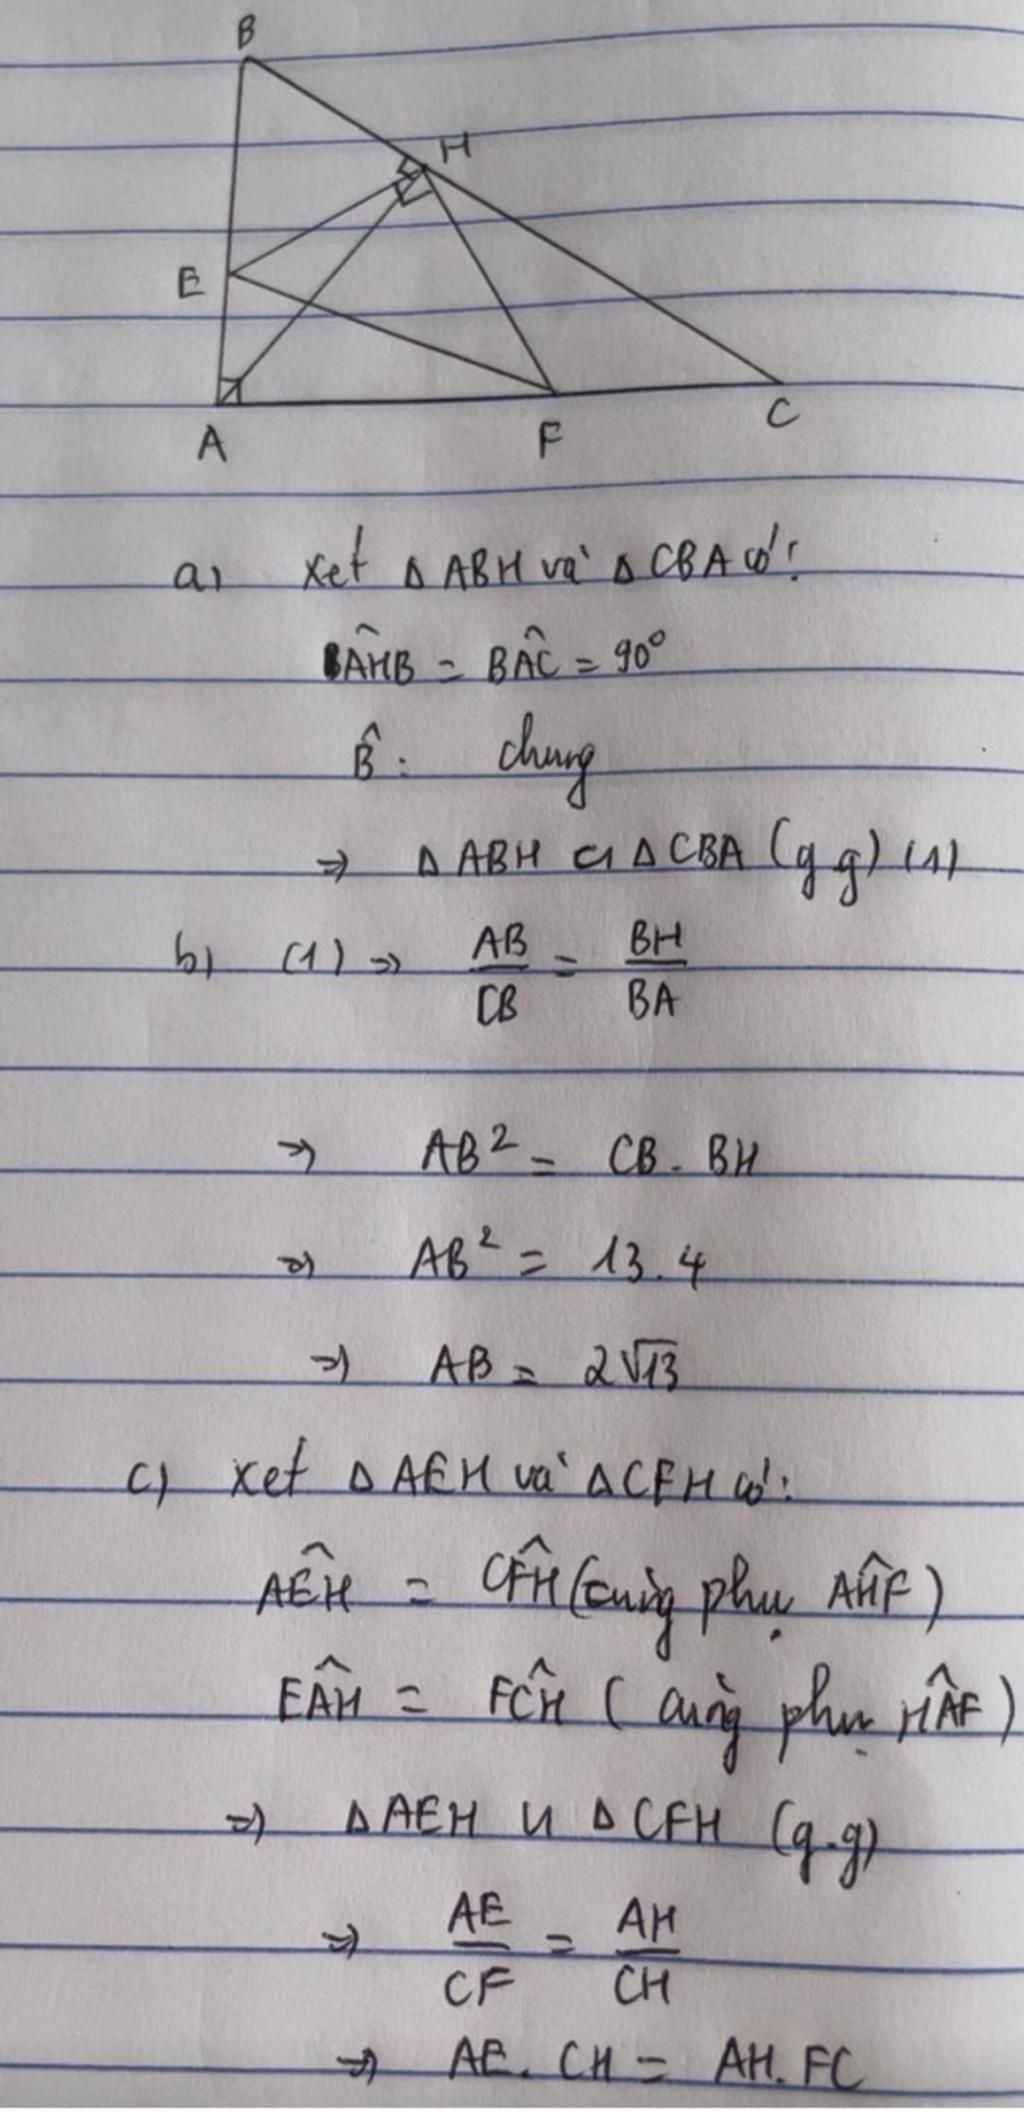 B
H
E
A
F
C
a) xet Δ ABH và Δ CBA có:
AĤB = BÂC = 90°
B̂ : chung
⇒ Δ ABH ᔕ Δ CBA (g g) (1)
b) (1) ⇒ AB/CB = BH/BA
⇒ AB² = CB . BH
⇒ AB² = 13 . 4
⇒ AB = 2√13
c) xet Δ AEH và Δ CFH có:
AÊH = CF̂H (cùng phụ AĤF)
EÂH = FĈH ( cùng phụ HÂF )
⇒ Δ AEH ᔕ Δ CFH (g.g)
⇒ AE/CF = AH/CH
⇒ AE . CH = AH. FC